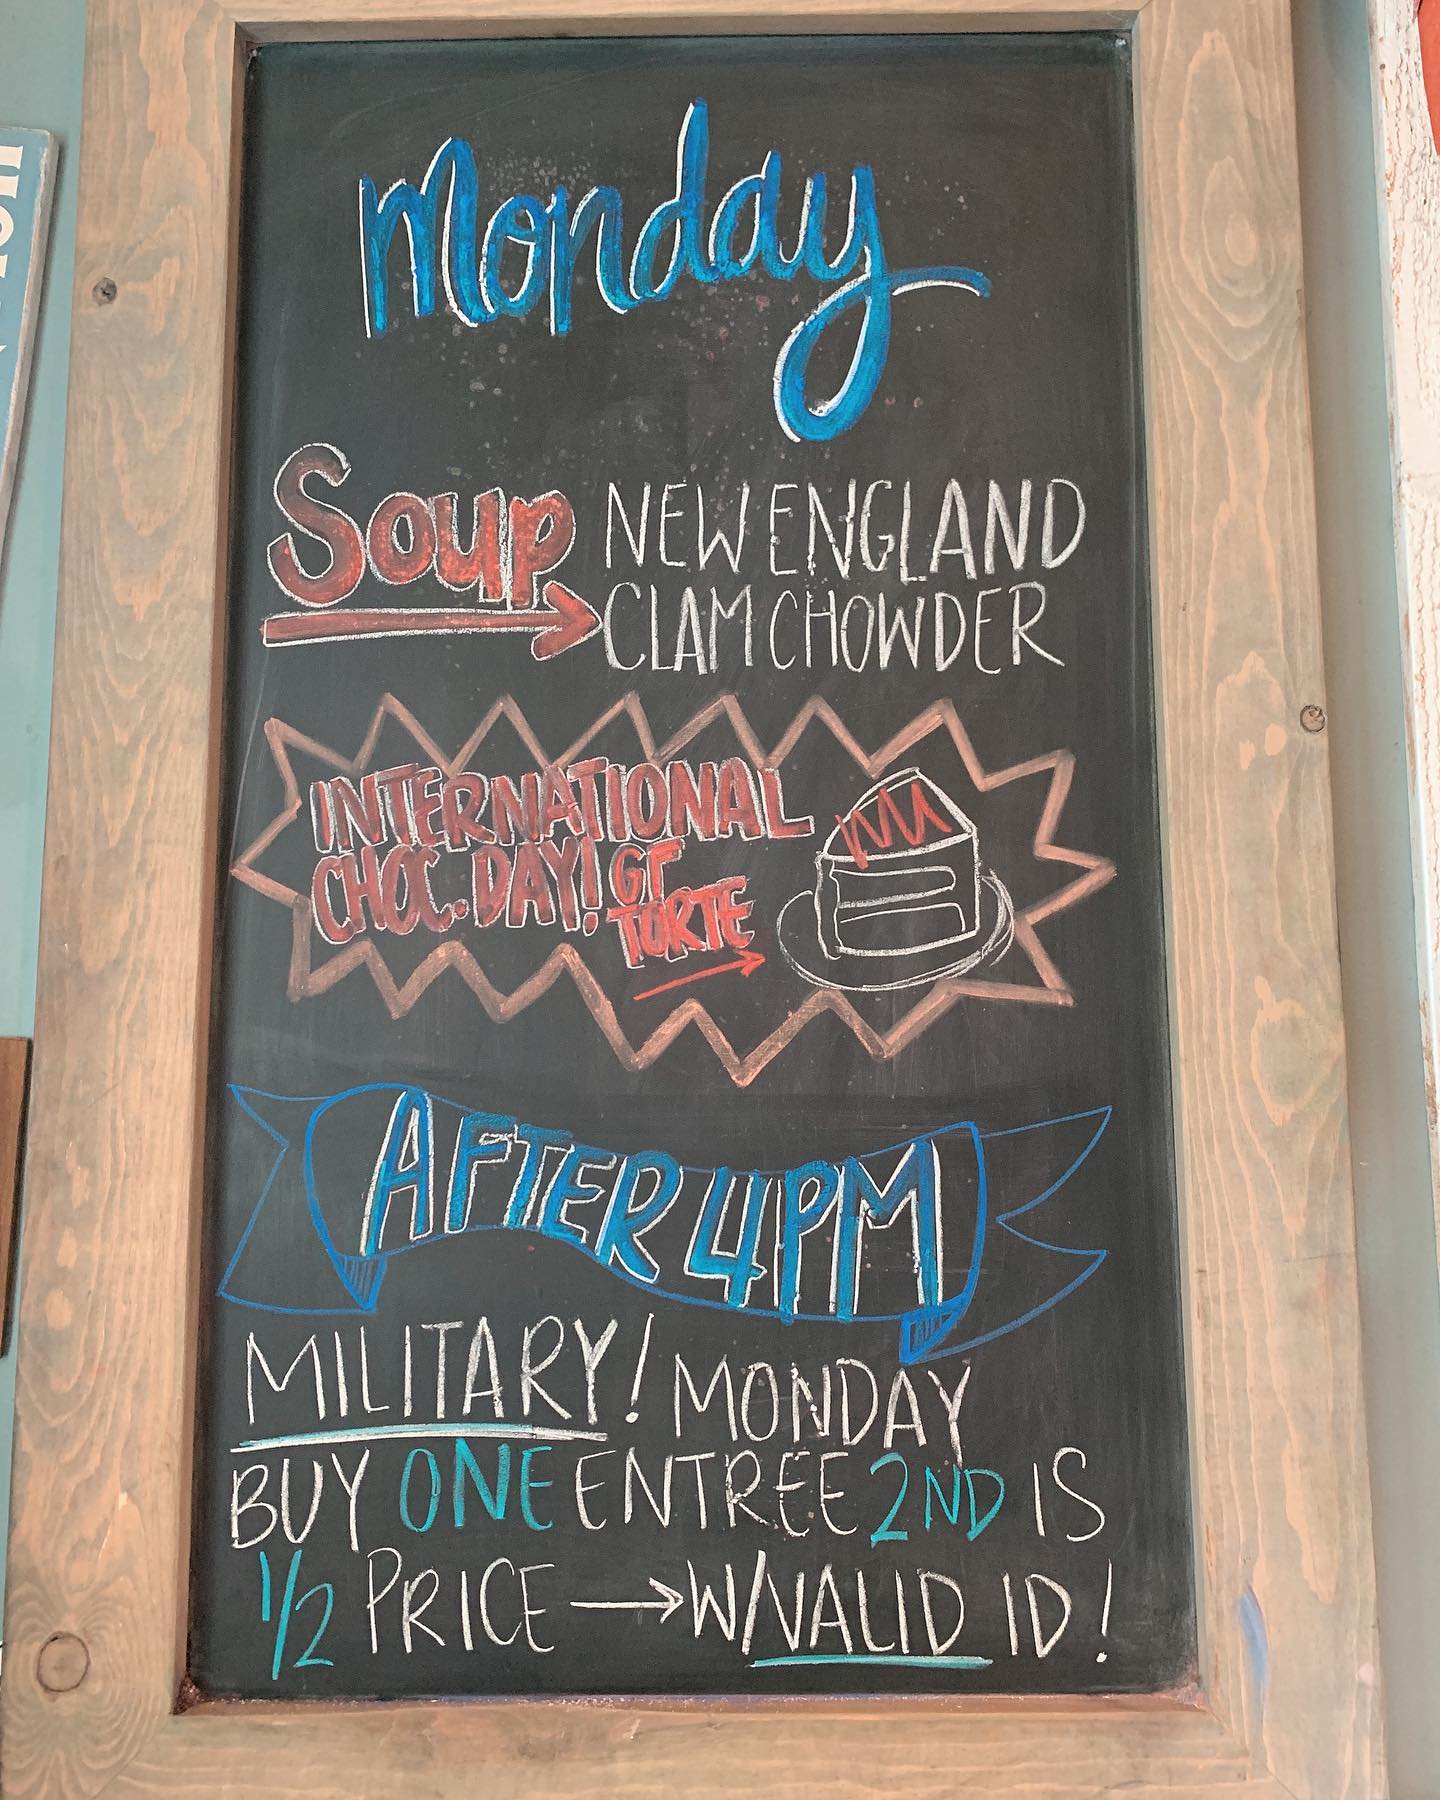 Monday
Soup NEW ENGLAND
CLAM CHOWDER
INTERNATIONAL
CHOC. DAY! GF
TORTE
AFTER 4PM
MILITARY! MONDAY
BUY ONE ENTREE 2ND IS
1/2 PRICE → W/VALID ID!